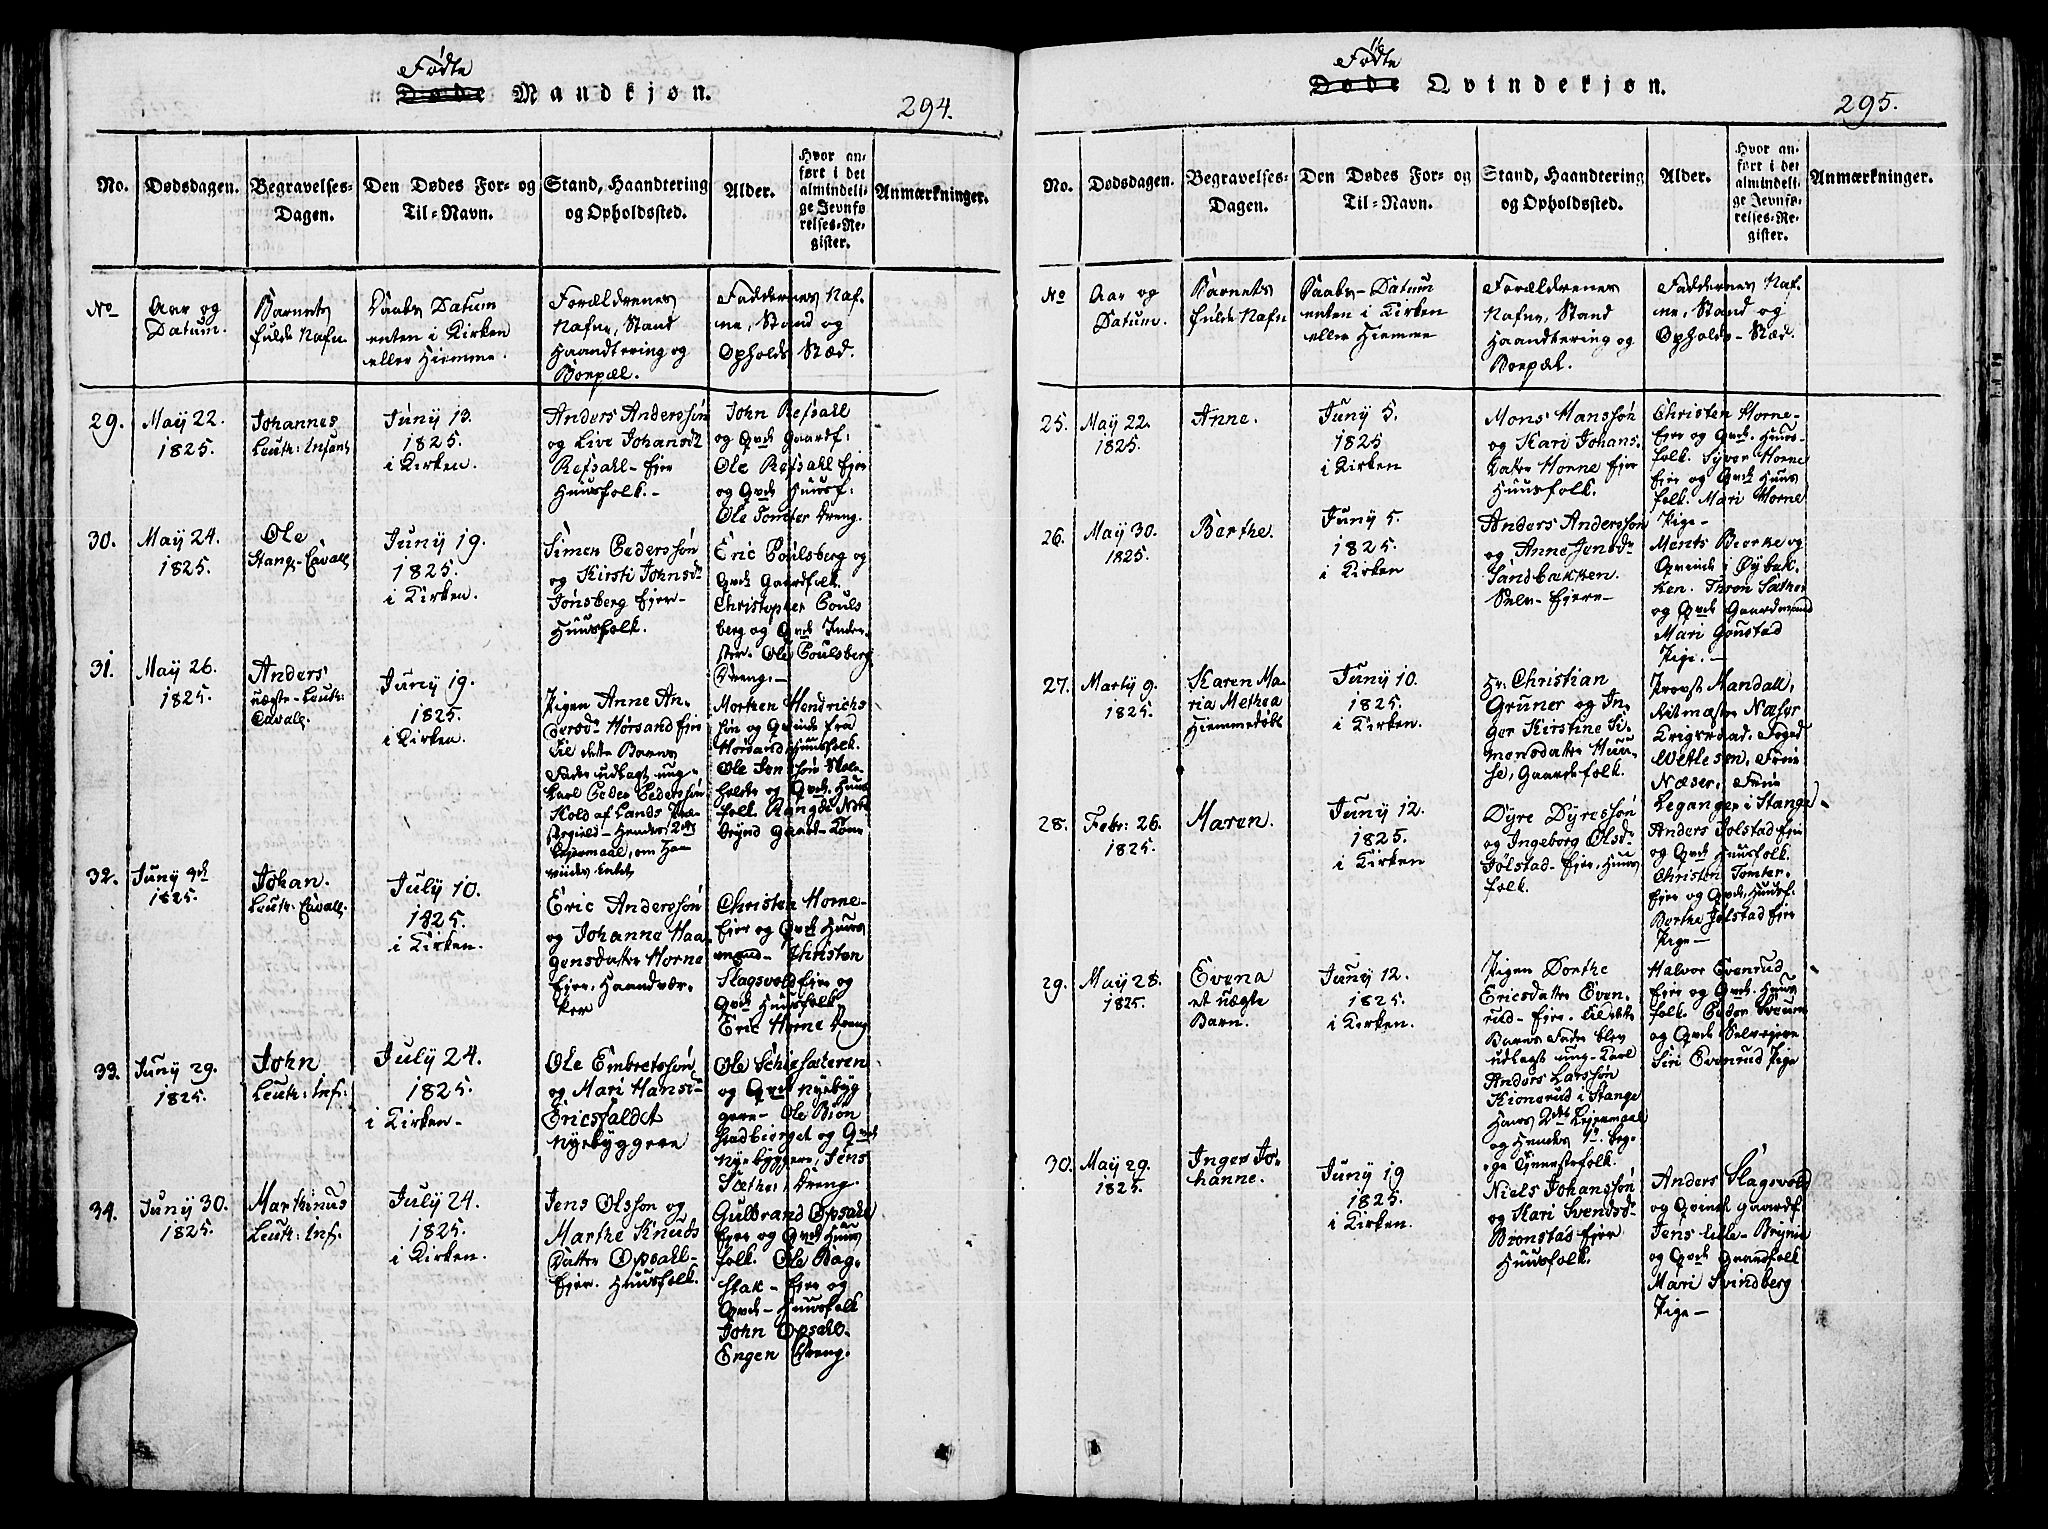 Fødte
Døde Mandkjøn.
294.
No.
Dødsdagen.
Begravelses-
Dagen.
Den Dødes For- og
Til-Navn.
Stand, Haandtering
og Opholdssted.
Alder.
Hvor an-
ført i det
almindeli-
ge Jevnfø-
relses-Re-
gister.
Anmærkninger.
No
Aar og
Datum.
Barnets
fulde Nafn.
Daabs Datum
enten i Kirken
eller Hiemme.
Forældrenes
Nafne, Stand
Haandtering og
Boepæl.
Faddernes Naf-
ne, Stand og
Opholds Stæd.
29.
May 22.
1825.
Johannes
Leuth: Infant
Juny 13.
1825.
i Kirken.
Anders Anderssøn
og Live Johansdr
Refsahl-Ejer
Huusfolk.-
John Refsahl
og Qvde Gaardf:
Ole Refsahl Ejer
og Qvde Huusf:
Ole Tomter Dreng.
30.
May 24.
1825.
Ole
Stang-Cavall
Juny 19.
1825.
i Kirken.
Simen Pederssøn
og Kirsti Johnsdr
Jønsberg Ejer-
Huusfolk.
Eric Poulsberg og
Qvde Gaardfolk.
Christopher Pouls
berg og Qvde Inder-
ster. Ole Poulsberg
Dreng.-
31.
May 26.
1825.
Anders
uægte-Leuth:
Cavall.
Juny 19.
1825.
i Kirken.
Pigen Anne An-
dersdr Horsand Ejer
Til dette Barns
Fader udlagt ung-
karl Peder Pederssøn
Kold af Lands Præ-
stegield-Hendes 2det
Lejermaal, om Han
viides-Intet
Morthen Hendrichs
søn og Qvinde fra
Horsand Huusfolk.
Ole Jonssøn Skole-
holder og Qvde Huus
folk. Rangdi Nord
Brynd Gaard-Kone
32.
Juny 9de
1825.
Johan.
Leuth: Cavall.
July 10.
1825.
i Kirken.
Eric Anderssøn
og Johanne Haa-
gensdatter Horne
Ejer, Haandvær-
ker
Christen Horne-
Ejer og Qvde Huus
mænd- Christen
Slagsvold Ejer og
Qvde Huusfolk
Eric Horne Dreng
33.
Juny 29.
1825.
John
Leuth: Inf:
July 24.
1825.
i Kirken-
Ole Embretssøn
og Mari Hansdr
Ericsfaldet
Nyebyggere
Ole Schiesæteren
og Qvde Nyebyg
gere- Ole Biøn
stadbierget og Qvde
Nyebyggere, Jens
Sæther, Dreng.
34.
Juny 30.
1825.
Marthinus
Leuth: Inf:
July 24.
1825.
i Kirken.
Jens Olssøn og
Marthe Knuds
Datter Opsahl-
Ejer. Huusfolk.
Gulbrand Opsahl
Ejer og Qvde Huus
folk. Ole Bag-
stak- Ejer og
Qvde-Huusfolk
John Opsahl-
Engen Dreng.
Fødte
Døde Qvindekjøn.
295.
No.
Dødsdagen.
Begravelses-
Dagen.
Den Dødes For- og
Til-Navn.
Stand, Haandtering
og Opholdssted.
Alder.
Hvor an-
ført i det
almindeli-
ge Jevnfø-
relses-Re-
gister.
Anmærkninger.
No
Aar og
Datum.
Barnets
fulde Nafn
Daabs-Datum
enten i Kirken
eller Hiemme
Forældrenes
Nafne, Stand
Haandtering og
Boepæl.
Faddernes Naf-
ne, Stand og
Opholds-Stæd.
25.
May 22.
1825.
Anne.
Juny 5.
1825
i Kirken
Mons Hanssøn
og Kari Johans-
datter Horne Ejer
Huusfolk.
Christen Horne-
Ejer og Qvde. Huus-
folk. Syver Horne
Ejer og Qvde Huus
folk. Mari Horne
Pige-
26.
May 30.
1825.
Berthe.
Juny 5.
1825.
i Kirken
Anders Anderssøn
og Anne Jensdr
Sandbakken.
Selv-Ejere-
Ments Bierke og
Qvinde i Øybak-
ken. Thron Sæther
og Qvde Gaardmænd
Mari Gonstad
Pige.-
27.
Marty 9.
1825.
Karen Ma-
ria Methea
Hiemmedøbt
Juny 10.
1825.
i Kirken.
Hr: Christian
Gruner og In-
ger Kirstine Si-
mensdatter Huu-
se, Gaardfolk.
Provst Mandall,
Ritmæster Næser
Krigsraad. Foged
Wetlesen, Frue
Næser, Frue
Leganger i Stange
28.
Febr: 26.
1825.
Maren.
Juny 12.
1825.
i Kirken
Dyre Dyressøn
og Ingeborg Olsdr
Jølstad-Ejer, Huus
folk.
Anders Jolstad Ejer
og Qvde Huusfolk.
Christen Tomter-
Ejer og Qvde. Huusf.
Berthe Jolstad Ejer
Pige-
29.
May 28.
1825.
Evena
et uægte
Barn.
Juny 12.
1825.
i Kirken.
Pigen Dorthe
Ericsdatter Even-
rud- Ejer. Til dette
Barns Fader blev
udlagt ung-Karl
Anders Larssøn
Kionerud i Stange
Hans 2det Lejermaal
og Hendes 1te. beg-
ge Tjenestefolk.
Halvor Evenrud
Ejer og Qvde. Huus
folk. Peder Sveum
og Qvde Selvejere
Siri Evenrud Pige
30.
May 29.
1825.
Inger Jo-
hanne.
Juny 19
1825.
i Kirken.
Niels Johanssøn
og Kari Svendsdr
Brønstad Ejer
Huusfolk.
Anders Slagsvold
og Qvinde Gaardf.
Jens Lille-Brynie
og Qvde Gaardfolk
Mari Svindberg
Pige-